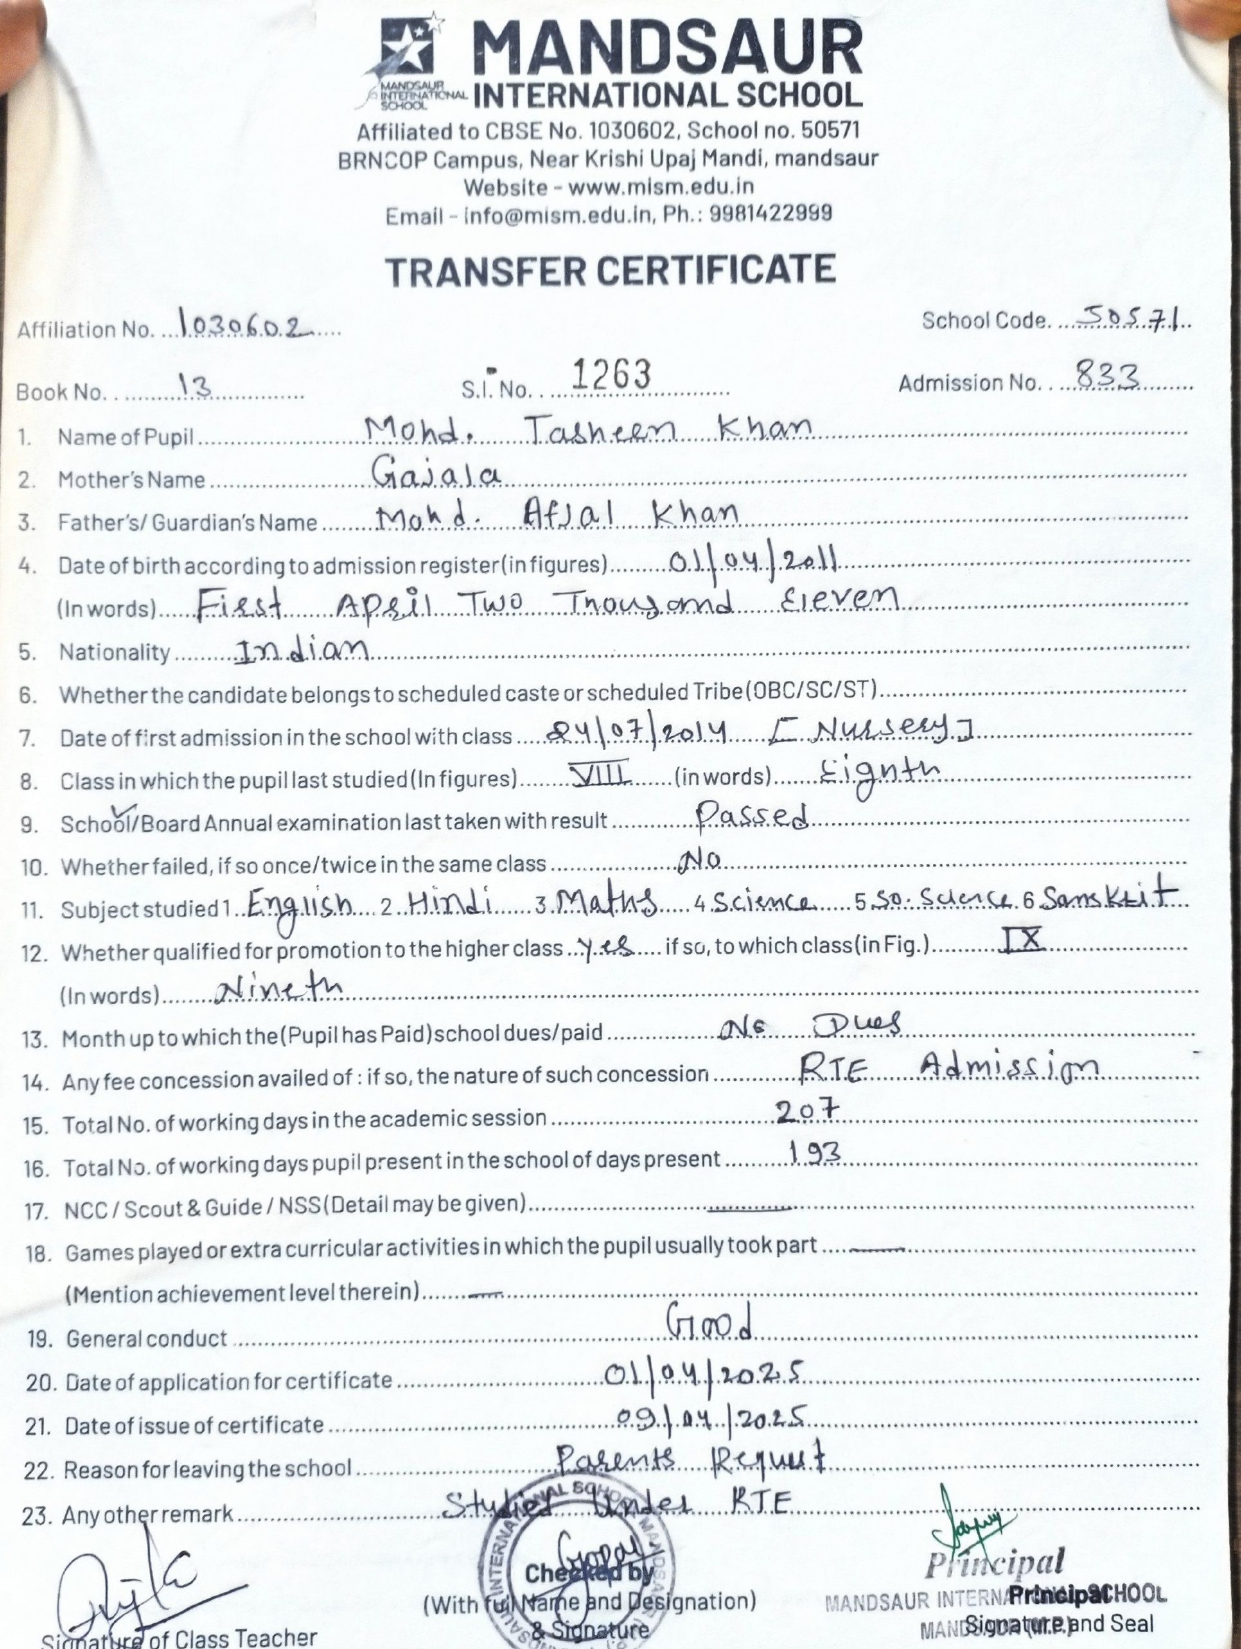 MANDSAUR
INTERNATIONAL SCHOOL
MANDSAUR
INTERNATIONAL
SCHOOL
Affiliated to CBSE No. 1030602, School no. 50571
BRNCOP Campus, Near Krishi Upaj Mandi, mandsaur
Website - www.mism.edu.in
Email - info@mism.edu.in, Ph.: 9981422999
TRANSFER CERTIFICATE
Affiliation No. ...1030602..... School Code. ....50571..
Book No. ..........13............... S.l. No. ...1263.............. Admission No. ...833.........
1. Name of Pupil........Mohd. Tasheen Khan
2. Mother's Name........Gajala
3. Father's/ Guardian's Name......Mohd. Afjal Khan
4. Date of birth according to admission register(in figures).........01/04/2011
(In words).....First April Two Thousand Eleven
5. Nationality.........Indian
6. Whether the candidate belongs to scheduled caste or scheduled Tribe(OBC/SC/ST)........
7. Date of first admission in the school with class....24/07/2014 [Nursery]
8. Class in which the pupil last studied(In figures).......VIII......(in words)......Eighth
9. School/Board Annual examination last taken with result............Passed
10. Whether failed, if so once/twice in the same class..................No
11. Subject studied 1..English...2..Hindi.....3.Maths....4 Science.....5 So. Science. 6 Sanskrit
12. Whether qualified for promotion to the higher class..yes....if so, to which class(in Fig.).........IX
(In words)........Nineth
13. Month up to which the(Pupil has Paid)school dues/paid.............No Dues
14. Any fee concession availed of : if so, the nature of such concession...........RTE Admission
15. Total No. of working days in the academic session.............207
16. Total No. of working days pupil present in the school of days present.........193
17. NCC / Scout & Guide / NSS(Detail may be given)...........
18. Games played or extra curricular activities in which the pupil usually took part....
(Mention achievement level therein)........
19. General conduct..........Good
20. Date of application for certificate..........01/04/2025
21. Date of issue of certificate..........09/04/2025
22. Reason for leaving the school..........Parents Request
23. Any other remark..........Studied Under RTE
Principal
Checked by
MANDSAUR INTERNATIONAL SCHOOL
Principal
(With full Name and Designation)
MANDSAUR (M.P.)
Signature and Seal
Signature of Class Teacher
& Signature